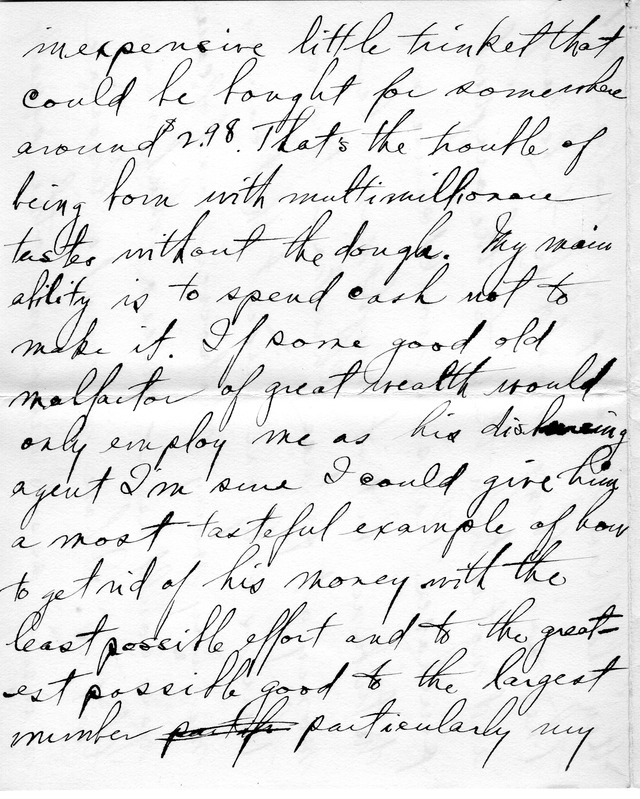 inexpensive little trinket that
could be bought for somewhere
around $2.98. That's the trouble of
being born with multimillionaire
tastes without the dough. My main
ability is to spend cash not to
make it. If some good old
malfactor of great wealth would
only employ me as his disbursing
agent I'm sure I could give him
a most tasteful example of how
to get rid of his money with the
least possible effort and to the great-
est possible good to the largest
number particularly my